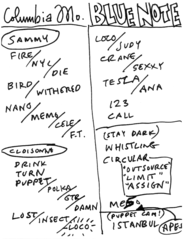 Columbia Mo.
SAMMY
FIRE/
NYC/
DIE
BIRD/
WITHERED
NANO/
MEMI/
CELE/
F.T.
CLOISONA
DRINK
TURN
PUPPET/
POLKA/
GTR/
DAMN
LOST/
INSECT/
LOCO
BLUE NOTE
LOCO/
JUDY
CRANE/
SEXXY
TESLA/
ANA
123
CALL
(STAY DARK)
WHISTLING
CIRCULAR
"OUTSOURCE"
LIMIT"
"ASSIGN"
(PUPPET CAM!)
ISTANBUL